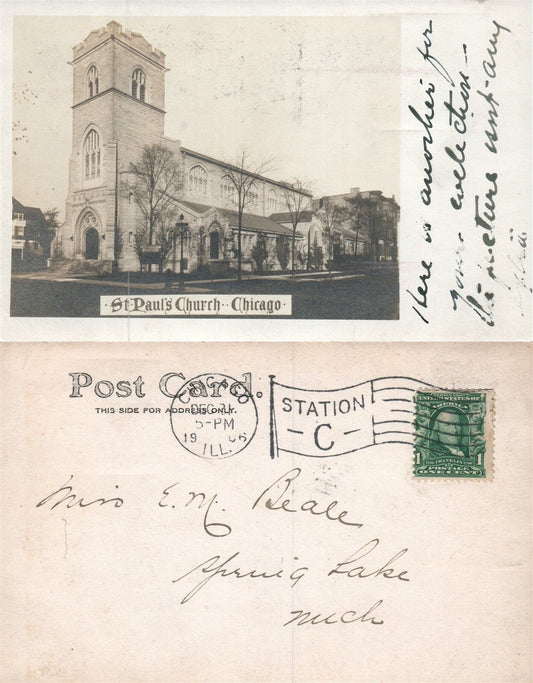 St. Paul's Church - Chicago.
Here is another for
your collection -
the picture isnt any
Post Card.
THIS SIDE FOR ADDRESS ONLY.
CHICAGO
DEC 21
5-PM
1906
ILL.
STATION
-C-
UNITED STATES OF
AMERICA
1 1
POSTAGE
ONE CENT
Miss E. M. Beale
Spring Lake
Mich